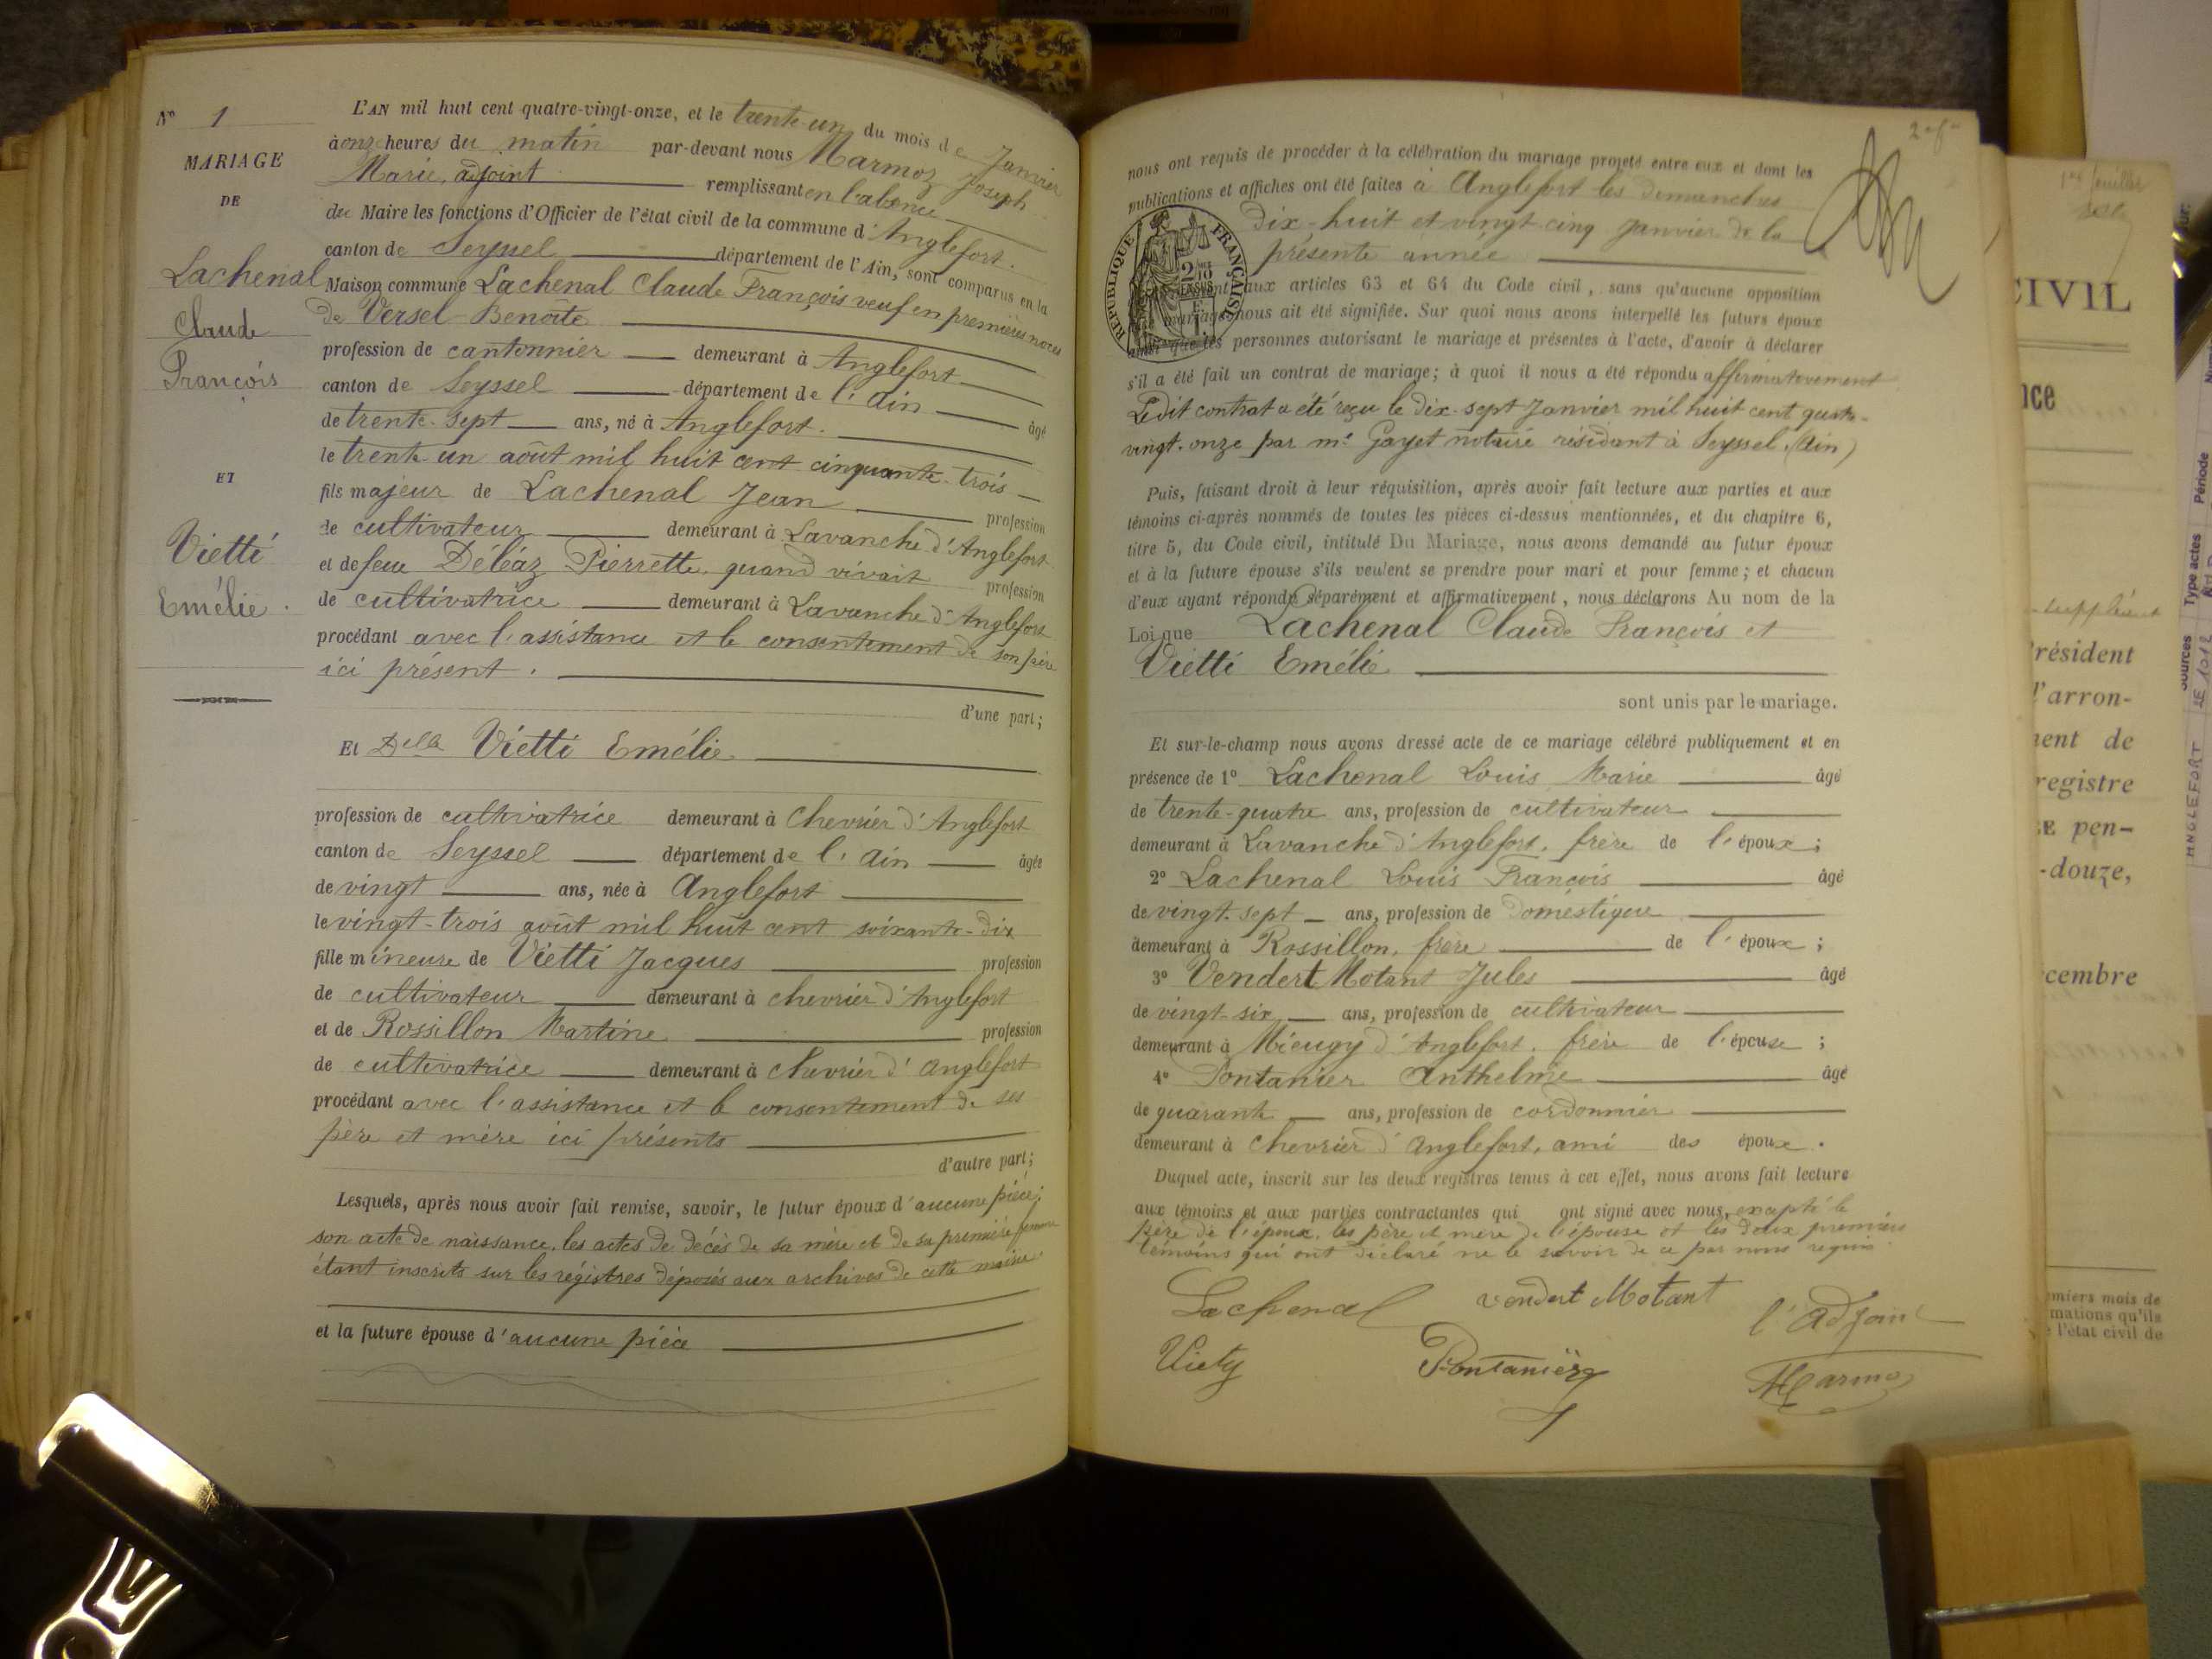 N° 1
MARIAGE
DE
Lachenal
Claude
François
ET
Vietti
Emélie.
L'AN mil huit cent quatre-vingt-onze, et le trente-un du mois de Janvier
à onze heures du matin par-devant nous Marmoz Joseph
Marie, adjoint remplissant en l'absence
du Maire les fonctions d'Officier de l'état civil de la commune d'Anglefort.
canton de Seyssel département de l'Ain, sont comparus en la
Maison commune Lachenal Claude François veuf en premières noces
De Versel Benoîte
profession de cantonnier demeurant à Anglefort
canton de Seyssel département de l'Ain âgé
de trente-sept ans, né à Anglefort.
le trente-un août mil huit cent cinquante-trois
fils majeur de Lachenal Jean profession
de cultivateur demeurant à Lavanche d'Anglefort
et de feue Déléaz Pierrette quand vivait profession
de cultivatrice demeurant à Lavanche d'Anglefort
procédant avec l'assistance et le consentement de son père
ici présent.
d'une part;
Et Delle Vietti Emélie
profession de cultivatrice demeurant à Chevrier d'Anglefort
canton de Seyssel département de l'Ain âgée
de vingt ans, née à Anglefort
le vingt-trois août mil huit cent soixante-dix
fille mineure de Vietti Jacques profession
de cultivateur demeurant à chevrier d'Anglefort
et de Rossillon Martine profession
de cultivatrice demeurant à chevrier d'Anglefort
procédant avec l'assistance et le consentement de ses
père et mère ici présents
d'autre part;
Lesquels, après nous avoir fait remise, savoir, le futur époux d'aucune pièce;
son acte de naissance, les actes de décès de sa mère et de sa première femme
étant inscrits sur les régistres déposés aux archives de cette mairie
et la future épouse d'aucune pièce
nous ont requis de procéder à la célébration du mariage projeté entre eux et dont les
publications et affiches ont été faites à Anglefort les dimanches
dix-huit et vingt-cinq Janvier de la
présente année
RÉPUBLIQUE FRANÇAISE
aux articles 63 et 64 du Code civil, sans qu'aucune opposition
mariage nous ait été signifiée. Sur quoi nous avons interpellé les futurs époux
ainsi que les personnes autorisant le mariage et présentes à l'acte, d'avoir à déclarer
s'il a été fait un contrat de mariage; à quoi il nous a été répondu affirmativement
Ledit contrat a été reçu le dix-sept Janvier mil huit cent quatre-
vingt-onze par me Gayet notaire résidant à Seyssel (Ain)
Puis, faisant droit à leur réquisition, après avoir fait lecture aux parties et aux
témoins ci-après nommés de toutes les pièces ci-dessus mentionnées, et du chapitre 6,
titre 5, du Code civil, intitulé Du Mariage, nous avons demandé au futur époux
et à la future épouse s'ils veulent se prendre pour mari et pour femme; et chacun
d'eux ayant répondu séparément et affirmativement, nous déclarons Au nom de la
Loi que Lachenal Claude François et
Vietti Emélie
sont unis par le mariage.
Et sur-le-champ nous avons dressé acte de ce mariage célébré publiquement et en
présence de 1° Lachenal Louis Marie âgé
de trente-quatre ans, profession de cultivateur
demeurant à Lavanche d'Anglefort, frère de l'époux;
2° Lachenal Louis François âgé
de vingt-sept ans, profession de Domestique
demeurant à Rossillon, frère de l'époux;
3° Vendert Motant Jules âgé
de vingt-six ans, profession de cultivateur
demeurant à Mieugy d'Anglefort. frère de l'épouse;
4° Pontanier Anthelme âgé
de quarante ans, profession de cordonnier
demeurant à chevrier d'Anglefort, ami des époux.
Duquel acte, inscrit sur les deux registres tenus à cet effet, nous avons fait lecture
aux témoins et aux parties contractantes qui ont signé avec nous, excepté le
père de l'époux, les père et mère de l'épouse et les deux premiers
témoins qui ont déclaré ne le savoir de ce par nous requis
Lachenal vendert Motant l'adjoint
Viety Pontanier Marmoz
CIVIL
Président
l'arron-
registre
pen-
-douze,
Sources Type actes Période
ANGLEFORT